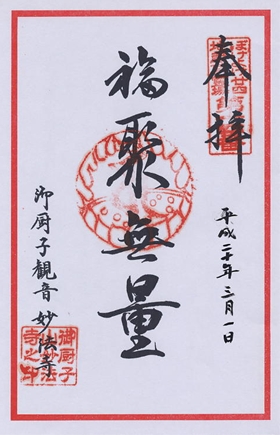 奉拝
福聚無量
平成二十年三月一日
御厨子観音妙法寺
御厨子
山妙法
寺之印